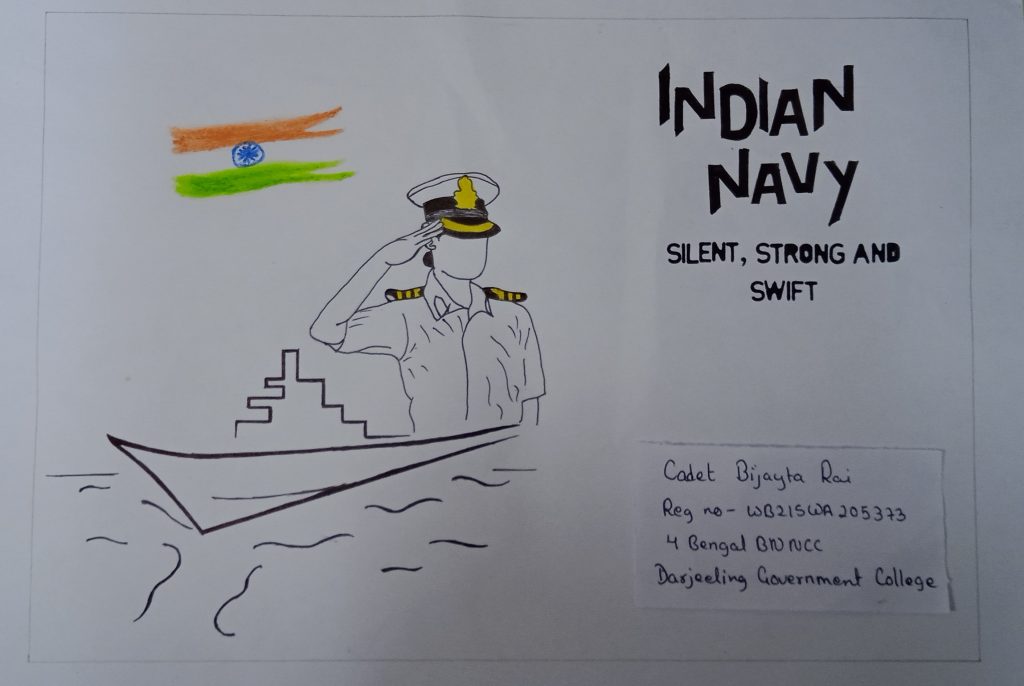 INDIAN
NAVY
SILENT, STRONG AND
SWIFT
Cadet Bijayta Rai
Reg no- WB21SWA205373
4 Bengal BN NCC
Darjeeling Government College